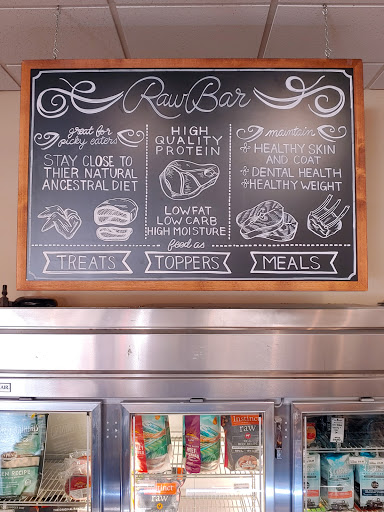 Raw Bar
great for
picky eaters
STAY CLOSE TO
THIER NATURAL
ANCESTRAL DIET
HIGH
QUALITY
PROTEIN
LOWFAT
LOW CARB
HIGH MOISTURE
maintain
HEALTHY SKIN
AND COAT
DENTAL HEALTH
HEALTHY WEIGHT
feed as
TREATS
TOPPERS
MEALS
AIR
instinct
raw
raw